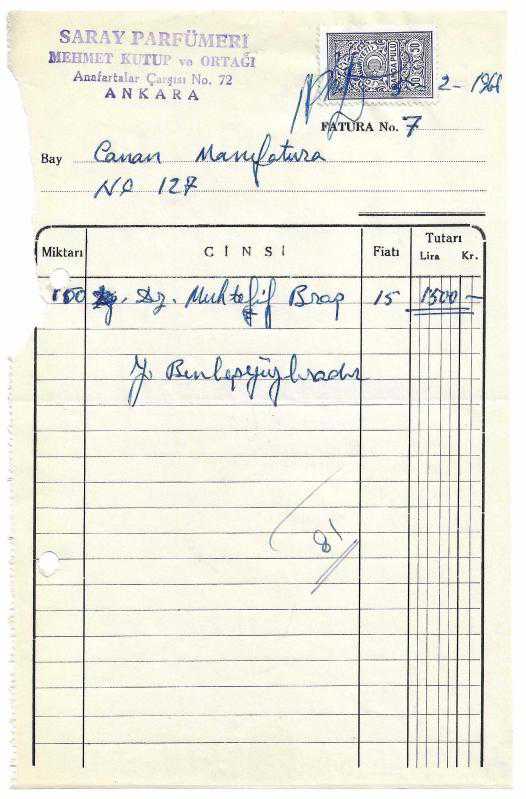 SARAY PARFÜMERİ
MEHMET KUTUP ve ORTAĞI
Anafartalar Çarşısı No. 72
ANKARA
2-196
FATURA No. 7
Bay Canan Manifatura
No 127
Miktarı CİNSİ Fiatı Tutarı
Lira Kr.
100 Dz. Muhtelif 15 1500 —
Y.
81